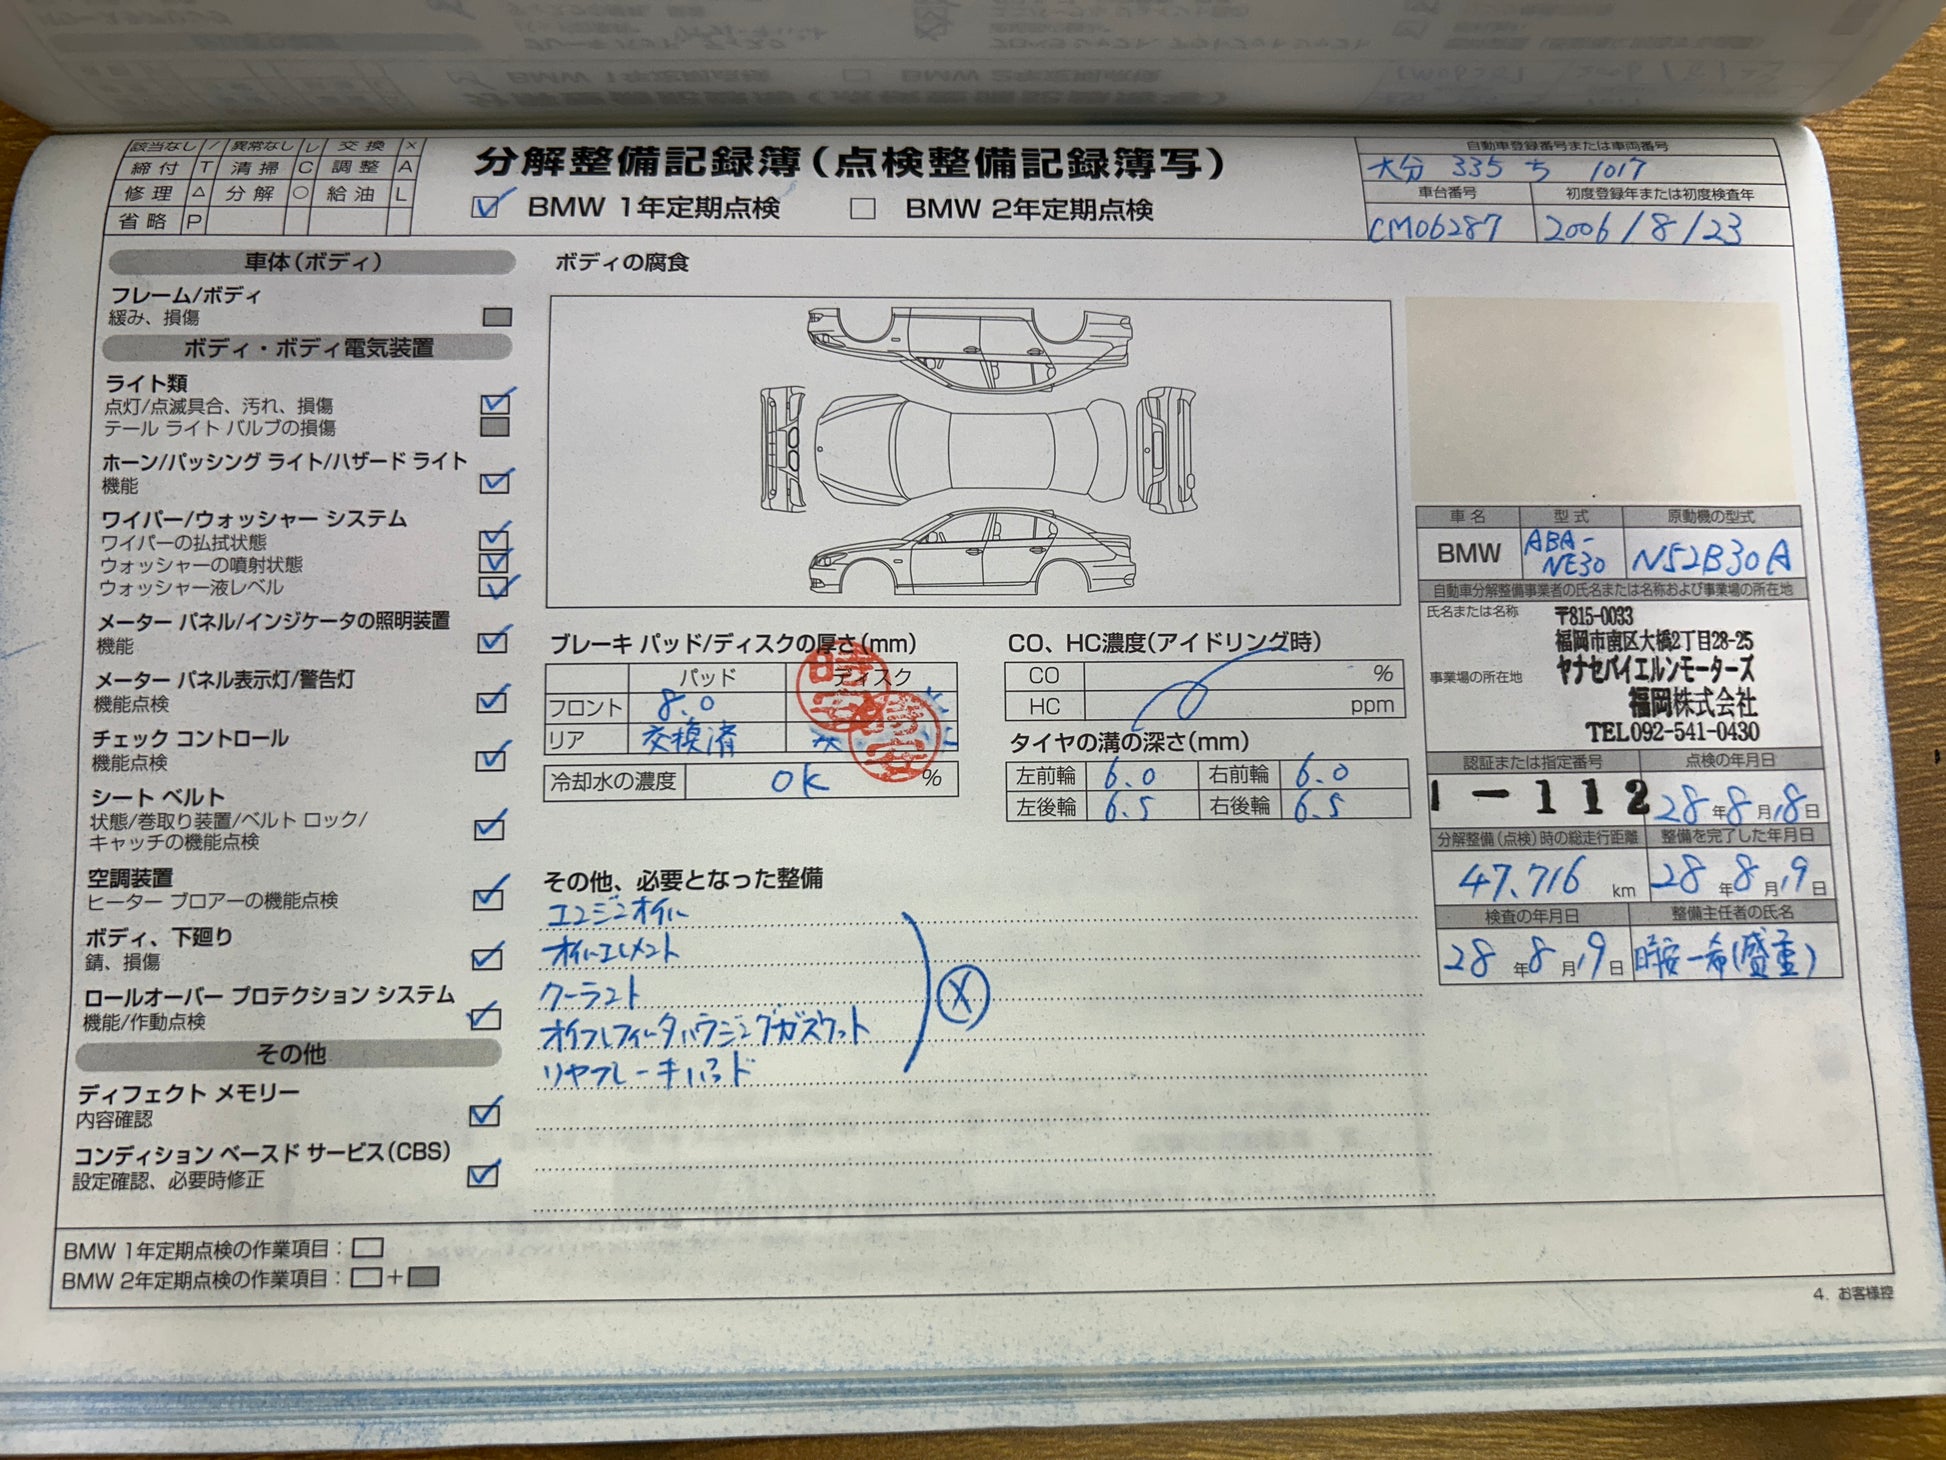 該当なし / 異常なし レ 交換 ×
締付 T 清掃 C 調整 A
修理 △ 分解 ○ 給油 L
省略 P
分解整備記録簿(点検整備記録簿写)
✓ BMW 1年定期点検 □ BMW 2年定期点検
自動車登録番号または車両番号
大分 335 ち 1017
車台番号 初度登録年または初度検査年
CM06287 2006/8/23
車体(ボディ)
フレーム/ボディ
緩み、損傷
ボディ・ボディ電気装置
ライト類
点灯/点滅具合、汚れ、損傷
テール ライト バルブの損傷
ホーン/パッシング ライト/ハザード ライト
機能
ワイパー/ウォッシャー システム
ワイパーの払拭状態
ウォッシャーの噴射状態
ウォッシャー液レベル
メーター パネル/インジケータの照明装置
機能
メーター パネル表示灯/警告灯
機能点検
チェック コントロール
機能点検
シート ベルト
状態/巻取り装置/ベルト ロック/
キャッチの機能点検
空調装置
ヒーター ブロアーの機能点検
ボディ、下廻り
錆、損傷
ロールオーバー プロテクション システム
機能/作動点検
その他
ディフェクト メモリー
内容確認
コンディション ベースド サービス(CBS)
設定確認、必要時修正
ボディの腐食
ブレーキ パッド/ディスクの厚さ(mm)
パッド ディスク
フロント 8.0
リア 交換済
冷却水の濃度 OK %
CO、HC濃度(アイドリング時)
CO %
HC ppm
タイヤの溝の深さ(mm)
左前輪 6.0 右前輪 6.0
左後輪 6.5 右後輪 6.5
その他、必要となった整備
エンジンオイル
オイルエレメント
クーラント
オイルフィルータハウジングガスケット
リヤブレーキパッド
X
車名 型式 原動機の型式
BMW ABA-NE30 N52B30A
自動車分解整備事業者の氏名または名称および事業場の所在地
氏名または名称
事業場の所在地
〒815-0033
福岡市南区大橋2丁目28-25
ヤナセバイエルンモーターズ
福岡株式会社
TEL092-541-0430
認証または指定番号 点検の年月日
1-112 28年8月18日
分解整備(点検)時の総走行距離 整備を完了した年月日
47,716 km 28年8月19日
検査の年月日 整備主任者の氏名
28年8月19日 一希(盛重)
BMW 1年定期点検の作業項目:□
BMW 2年定期点検の作業項目:□+■
4. お客様控